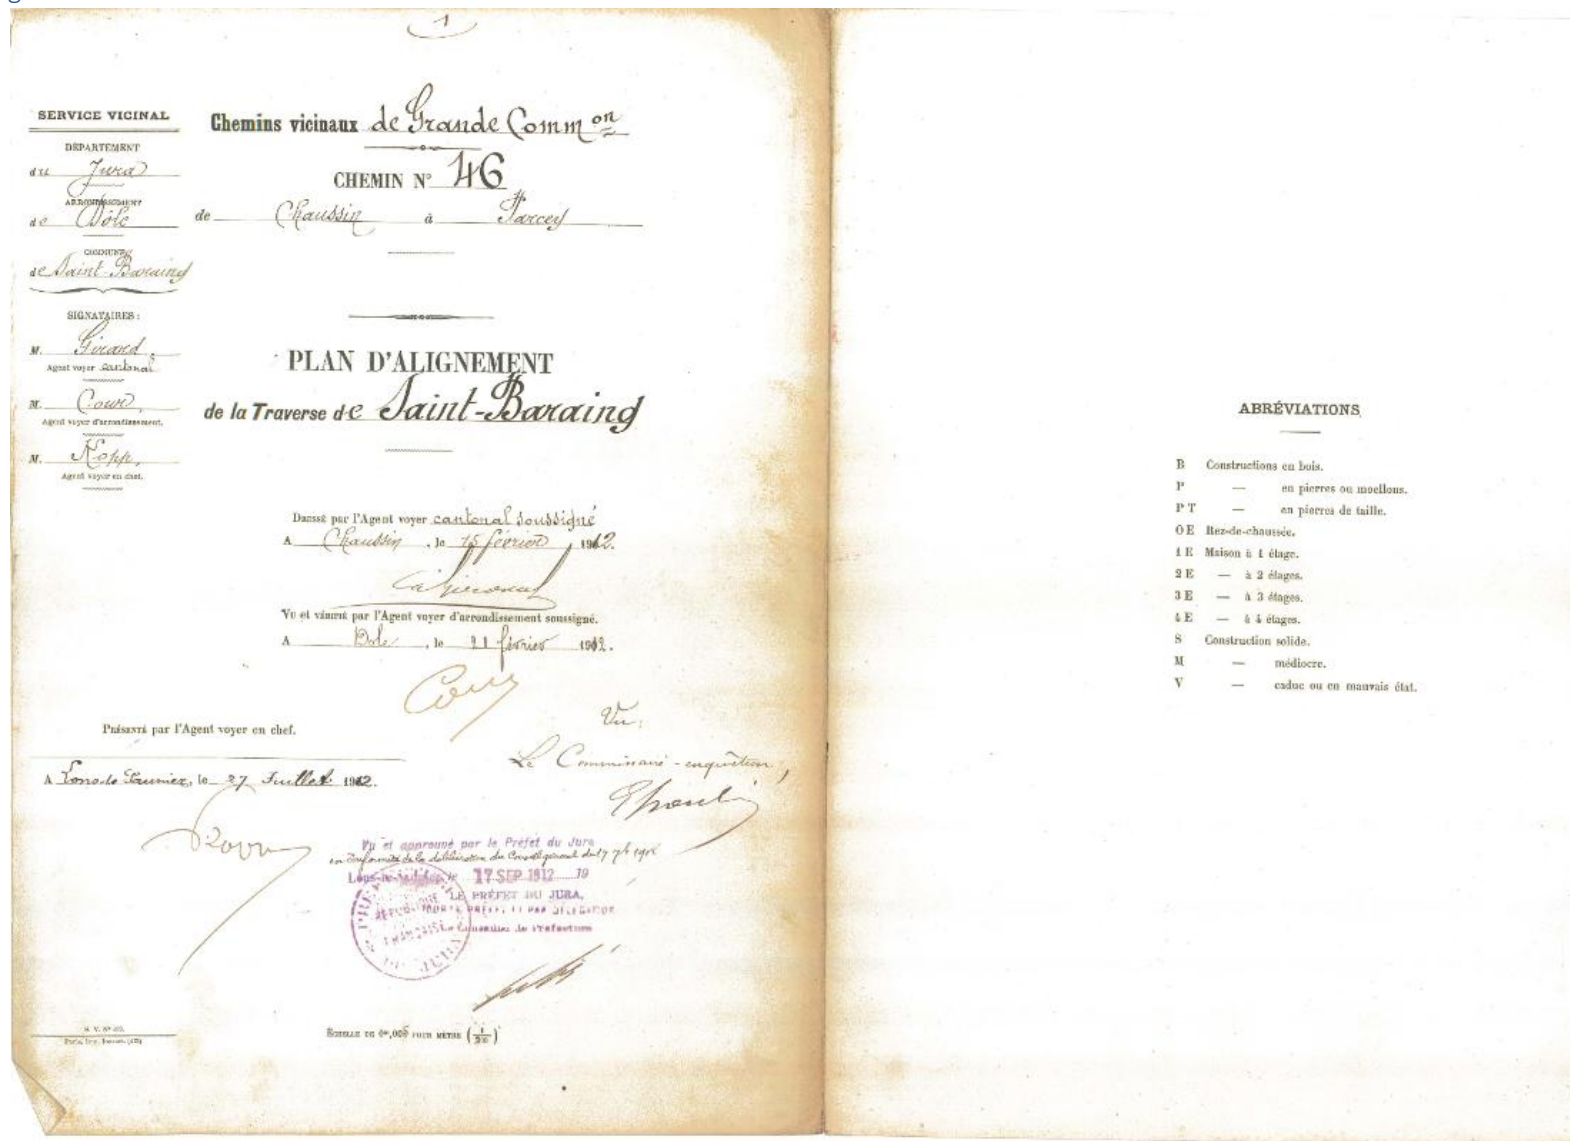 1
SERVICE VICINAL
DÉPARTEMENT
du Jura
ARRONDISSEMENT
de Dôle
COMMUNE
de Saint-Baraing
SIGNATAIRES :
M. Girard,
Agent voyer cantonal
M. Cour,
Agent voyer d'arrondissement.
M. Kopp,
Agent voyer en chef.
Chemins vicinaux de Grande Comm on
CHEMIN N° 46
de Chaussin à Parcey
PLAN D'ALIGNEMENT
de la Traverse de Saint-Baraing
Dressé par l'Agent voyer cantonal soussigné
A Chaussin, le 15 février 1912.
Vu et vérifié par l'Agent voyer d'arrondissement soussigné.
A Dole, le 21 février 1912.
Présenté par l'Agent voyer en chef.
A Lons-le-Saunier, le 27 Juillet 1912.
Vu :
Le Commissaire-enquêteur,
Vu et approuvé par le Préfet du Jura
en conformité de la délibération du Conseil général du 17 7bre 1912
Lons-le-Saunier, le 17 SEP 1912 19
LE PRÉFET DU JURA,
POUR LE PRÉFET ET PAR DÉLÉGATION
Le Conseiller de Préfecture
RÉPUBLIQUE
FRANÇAISE
DU JURA
S. V. N°
ECHELLE DE 0m,005 POUR MÈTRE (1/200)
ABRÉVIATIONS
B Constructions en bois.
P — en pierres ou moellons.
PT — en pierres de taille.
0E Rez-de-chaussée.
1E Maison à 1 étage.
2E — à 2 étages.
3E — à 3 étages.
4E — à 4 étages.
S Construction solide.
M — médiocre.
V — caduc ou en mauvais état.